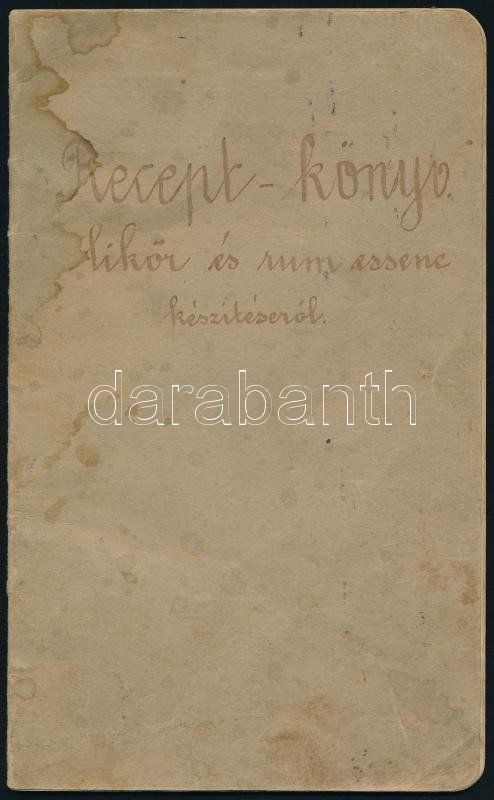 Recept - könyv.
likőr és rum essenc
készítéséről.
darabanth